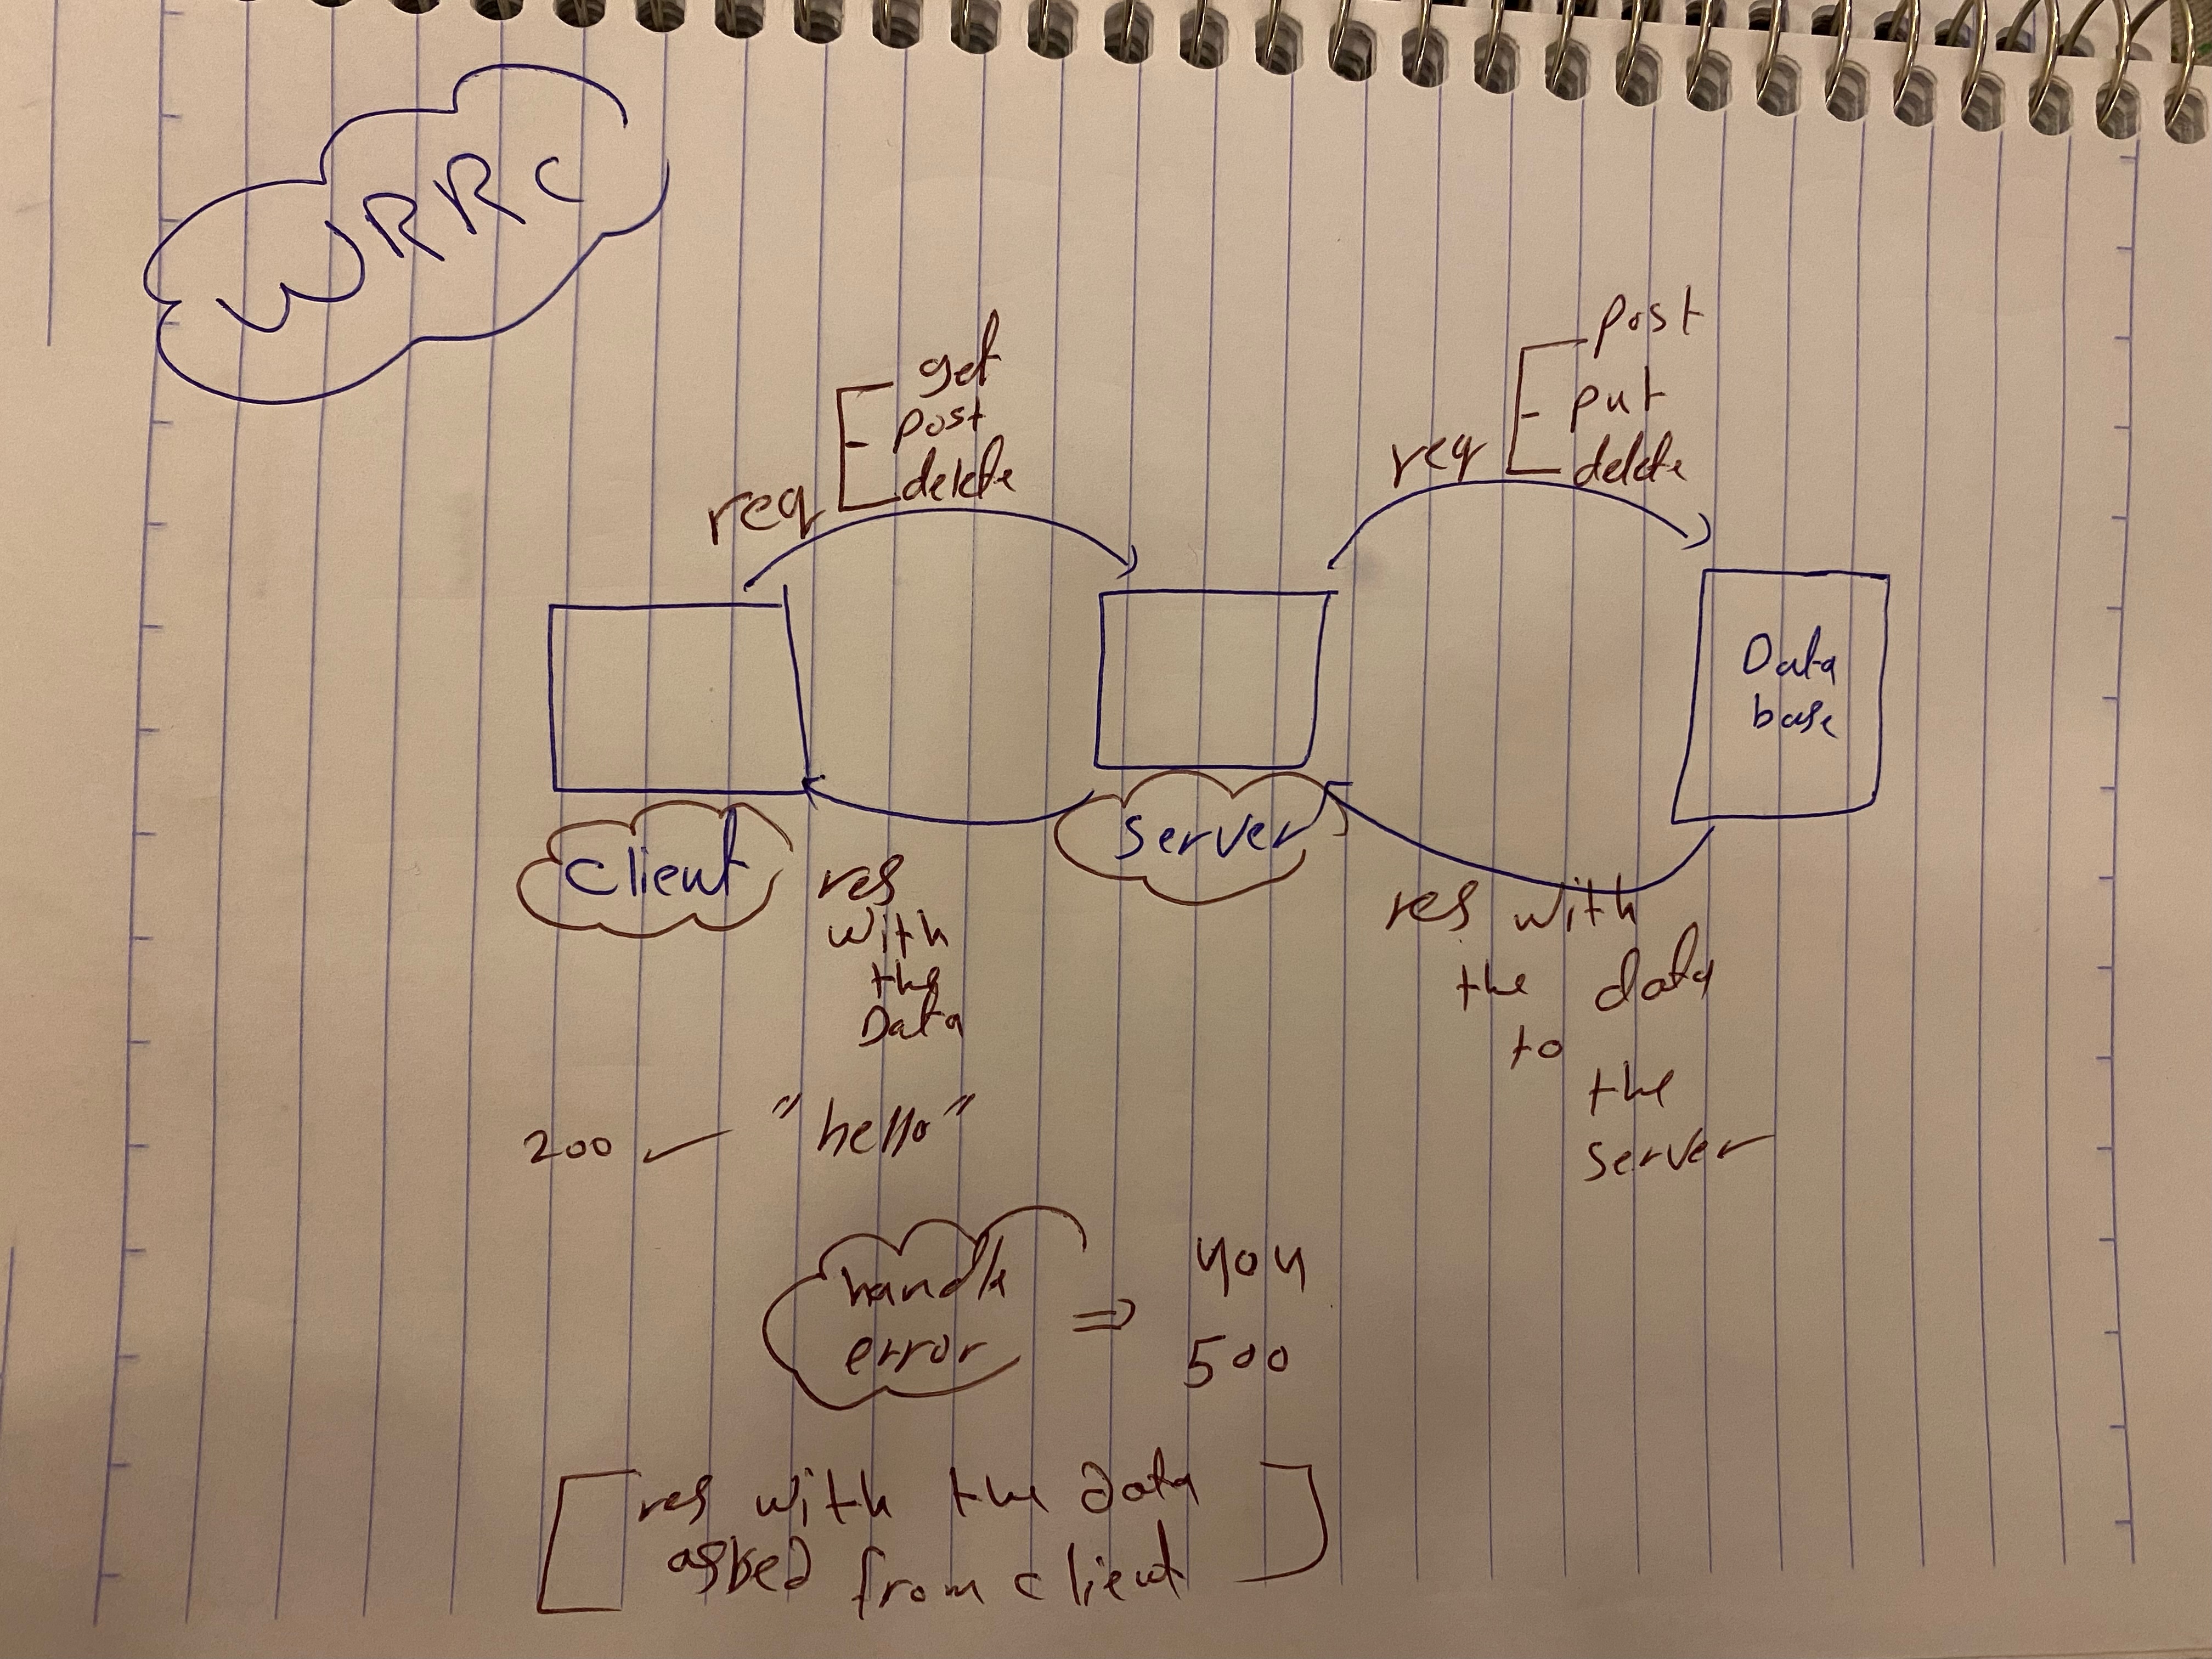 WRRC
get
post
delete
req
post
put
delete
req
Data
base
client
server
res
with
the
Data
res with
the data
to
the
server
200
"hello"
handle
error
=>
404
500
res with the data
asked from client